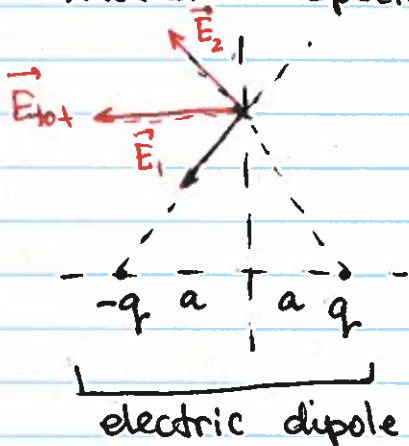 E₂
E_tot
E₁
-q a a q
electric dipole